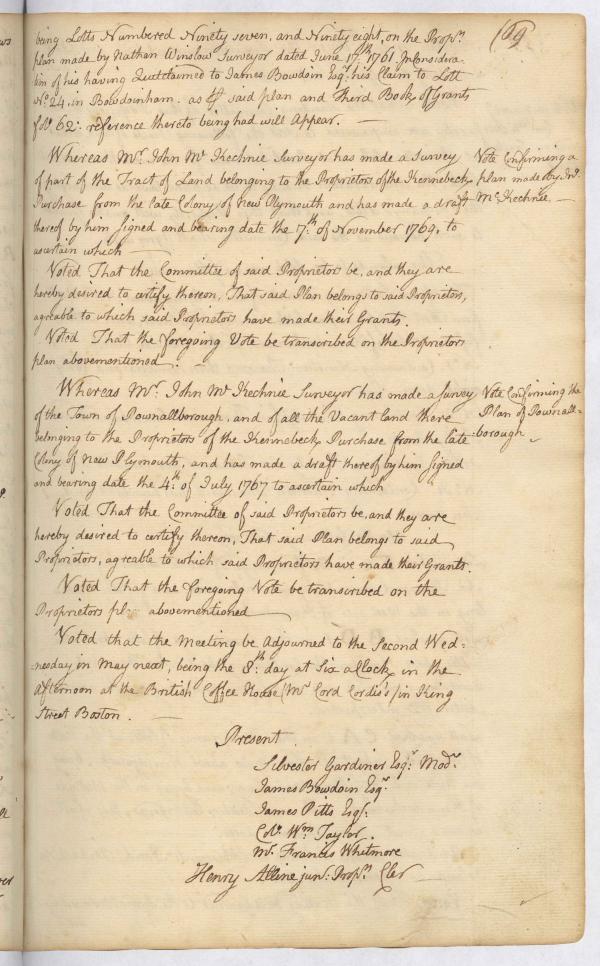 (69
being Lotts Numbered Ninety seven, and Ninety eight, on the Propn.
plan made by Nathan Winslow Surveyor dated June 17th. 1761. In Considera-
tion of his having Quitclaimed to James Bowdoin Esqr. his Claim to Lott
No. 24. in Bowdoinham. as [per] said plan and Third Book of Grants
folo. 62: reference thereto being had will Appear. —
Whereas Mr. John Mc Kechnie Surveyor has made a Survey
of part of the Tract of Land belonging to the Proprietors of the Kennebeck
Purchase from the late Colony of New Plymouth and has made a draft
thereof by him Signed and bearing date the 17th. of November 1769. to
ascertain which —
Vote Confirming a
plan made by Jno.
Mc. Kechnie —
Voted That the Committee of said Proprietors be, and they are
hereby desired to certify thereon, That said Plan belongs to said Proprietors,
agreable to which said Proprietors have made their Grants.
Voted That the foregoing Vote be transcribed on the Proprietors
plan abovementioned. —
Whereas Mr. John Mc Kechnie Surveyor has made a Survey
of the Town of Pownallborough, and of all the Vacant land there
belonging to the Proprietors of the Kennebeck Purchase from the late
Colony of New Plymouth, and has made a draft thereof by him Signed
and bearing date the 4th. of July 1767 to ascertain which
Vote Confirming the
Plan of Pownall=
=borough
Voted That the Committee of said Proprietors be, and they are
hereby desired to certify thereon, That said Plan belongs to said
Proprietors, agreable to which said Proprietors have made their Grants.
Voted That the foregoing Vote be transcribed on the
Proprietors pl: abovementioned —
Voted that the Meeting be Adjourned to the Second Wed=
=nesday in May next, being the 8th. day at Six a Clock in the
Afternoon at the British Coffee House (Mr Cord Cordis's) in King
Street Boston. —
Present.
Silvester Gardiner Esqr. Modr.
James Bowdoin Esqr.
James Pitts Esqr.
Colo. Wm. Taylor.
Mr. Francis Whitmore
Henry Alline junr. Propn. Cler